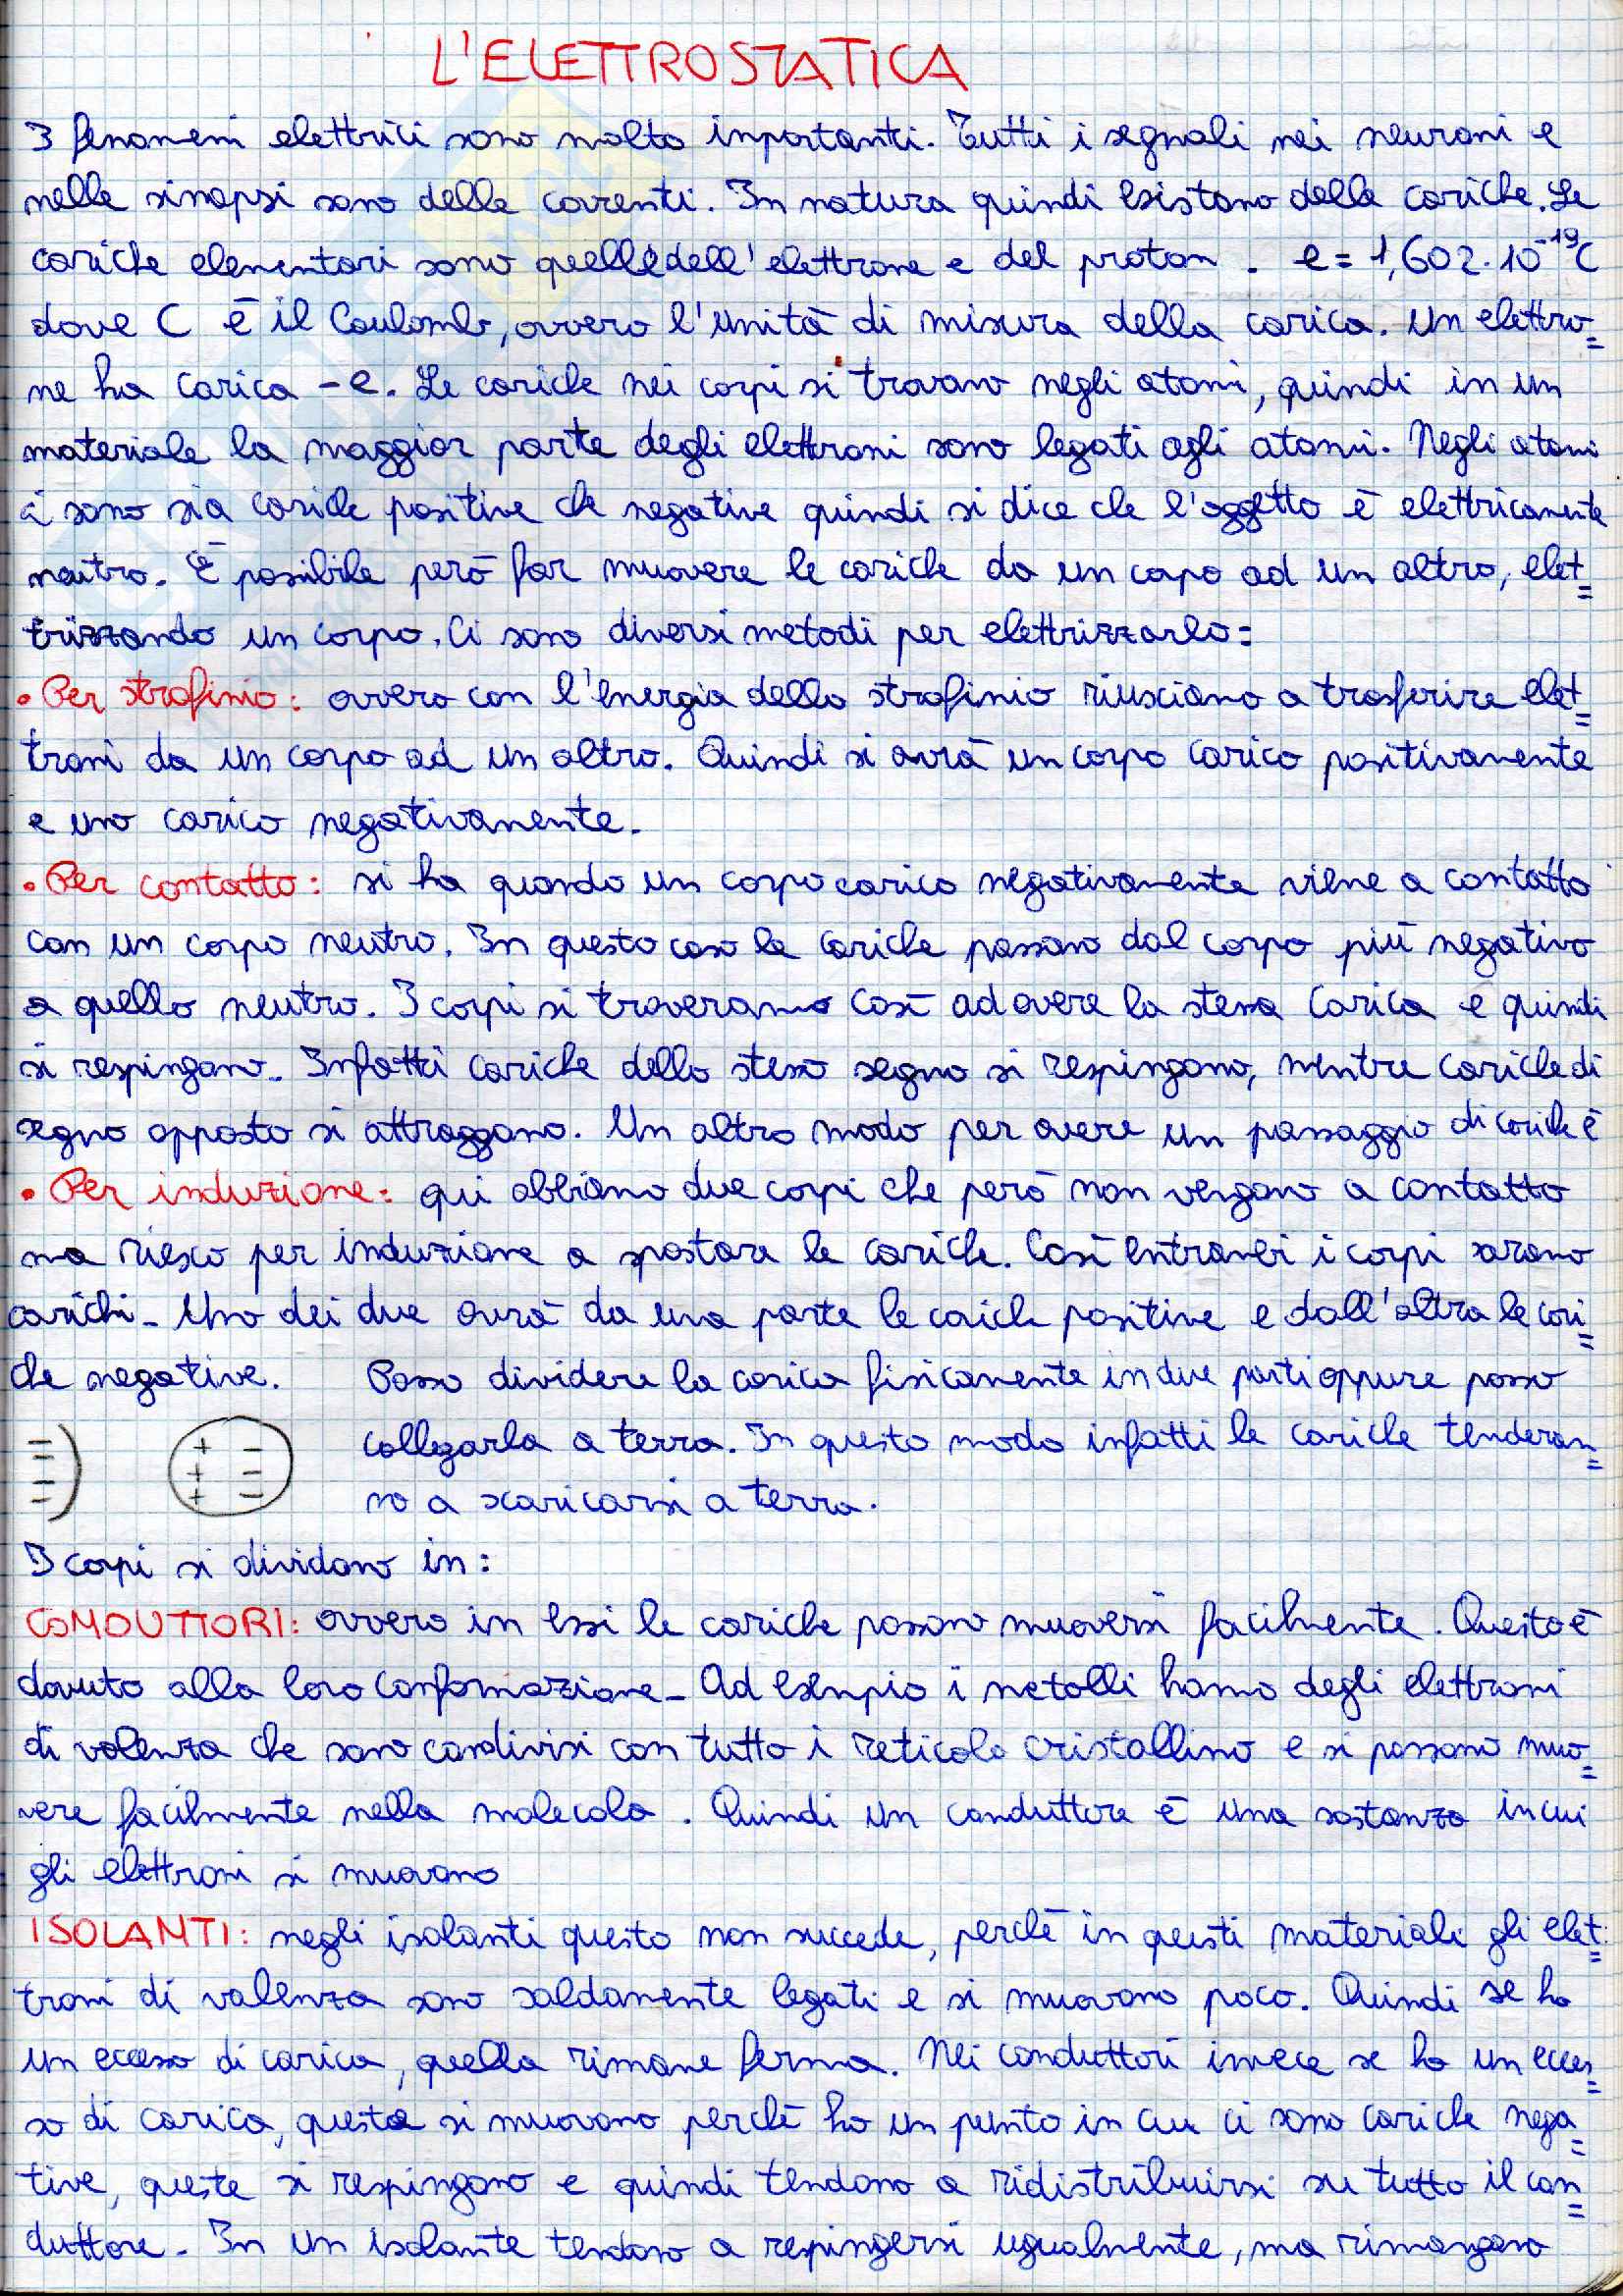 L'ELETTROSTATICA
I fenomeni elettrici sono molto importanti. Tutti i segnali nei neuroni e
nelle sinapsi sono delle correnti. In natura quindi esistono delle cariche. Le
cariche elementari sono quelle dell'elettrone e del proton . e = 1,602·10⁻¹⁹C
dove C è il Coulomb, ovvero l'unità di misura della carica. Un elettro=
ne ha carica -e. Le cariche nei corpi si trovano negli atomi, quindi in un
materiale la maggior parte degli elettroni sono legati agli atomi. Negli atomi
ci sono sia cariche positive che negative quindi si dice che l'oggetto è elettricamente
neutro. È possibile però far muovere le cariche da un capo ad un altro, elet=
trizzando un corpo. Ci sono diversi metodi per elettrizzarlo:
• Per strofinio: ovvero con l'energia dello strofinio riusciamo a trasferire elet=
troni da un corpo ad un altro. Quindi si avrà un corpo carico positivamente
e uno carico negativamente.
• Per contatto: si ha quando un corpo carico negativamente viene a contatto
con un corpo neutro. In questo caso le cariche passano dal corpo più negativo
a quello neutro. I corpi si troveranno così ad avere la stessa carica e quindi
si respingono. Infatti cariche dello stesso segno si respingono, mentre cariche di
segno opposto si attraggono. Un altro modo per avere un passaggio di cariche è
• Per induzione: qui abbiamo due corpi che però non vengono a contatto
ma riesco per induzione a spostare le cariche. Così entrambi i corpi sarano
carichi. Uno dei due avrà da una parte le carich positive e dall'altra le cari=
che negative. Posso dividere la carica fisicamente in due parti oppure posso
collegarla a terra. In questo modo infatti le cariche tenderan=
no a scaricarsi a terra.
- - - ) + + + - - -
I corpi si dividono in:
CONDUTTORI: ovvero in essi le cariche possono muoversi facilmente. Questo è
dovuto alla loro conformazione. Ad esempio i metalli hanno degli elettroni
di valenza che sono condivisi con tutto i reticolo cristallino e si possono muo=
vere facilmente nella molecola. Quindi un conduttore è una sostanza in cui
gli elettroni si muovono
ISOLANTI: negli isolanti questo non succede, perchè in questi materiali gli elet=
troni di valenza sono saldamente legati e si muovono poco. Quindi se ho
un eccesso di carica, quella rimane ferma. Nei conduttori invece se ho un ecces=
so di carica, queste si muovono perchè ho un punto in cui ci sono cariche nega=
tive, queste si respingono e quindi tendono a ridistribuirsi su tutto il con=
duttore. In un isolante tendono a respingersi ugualmente, ma rimangono